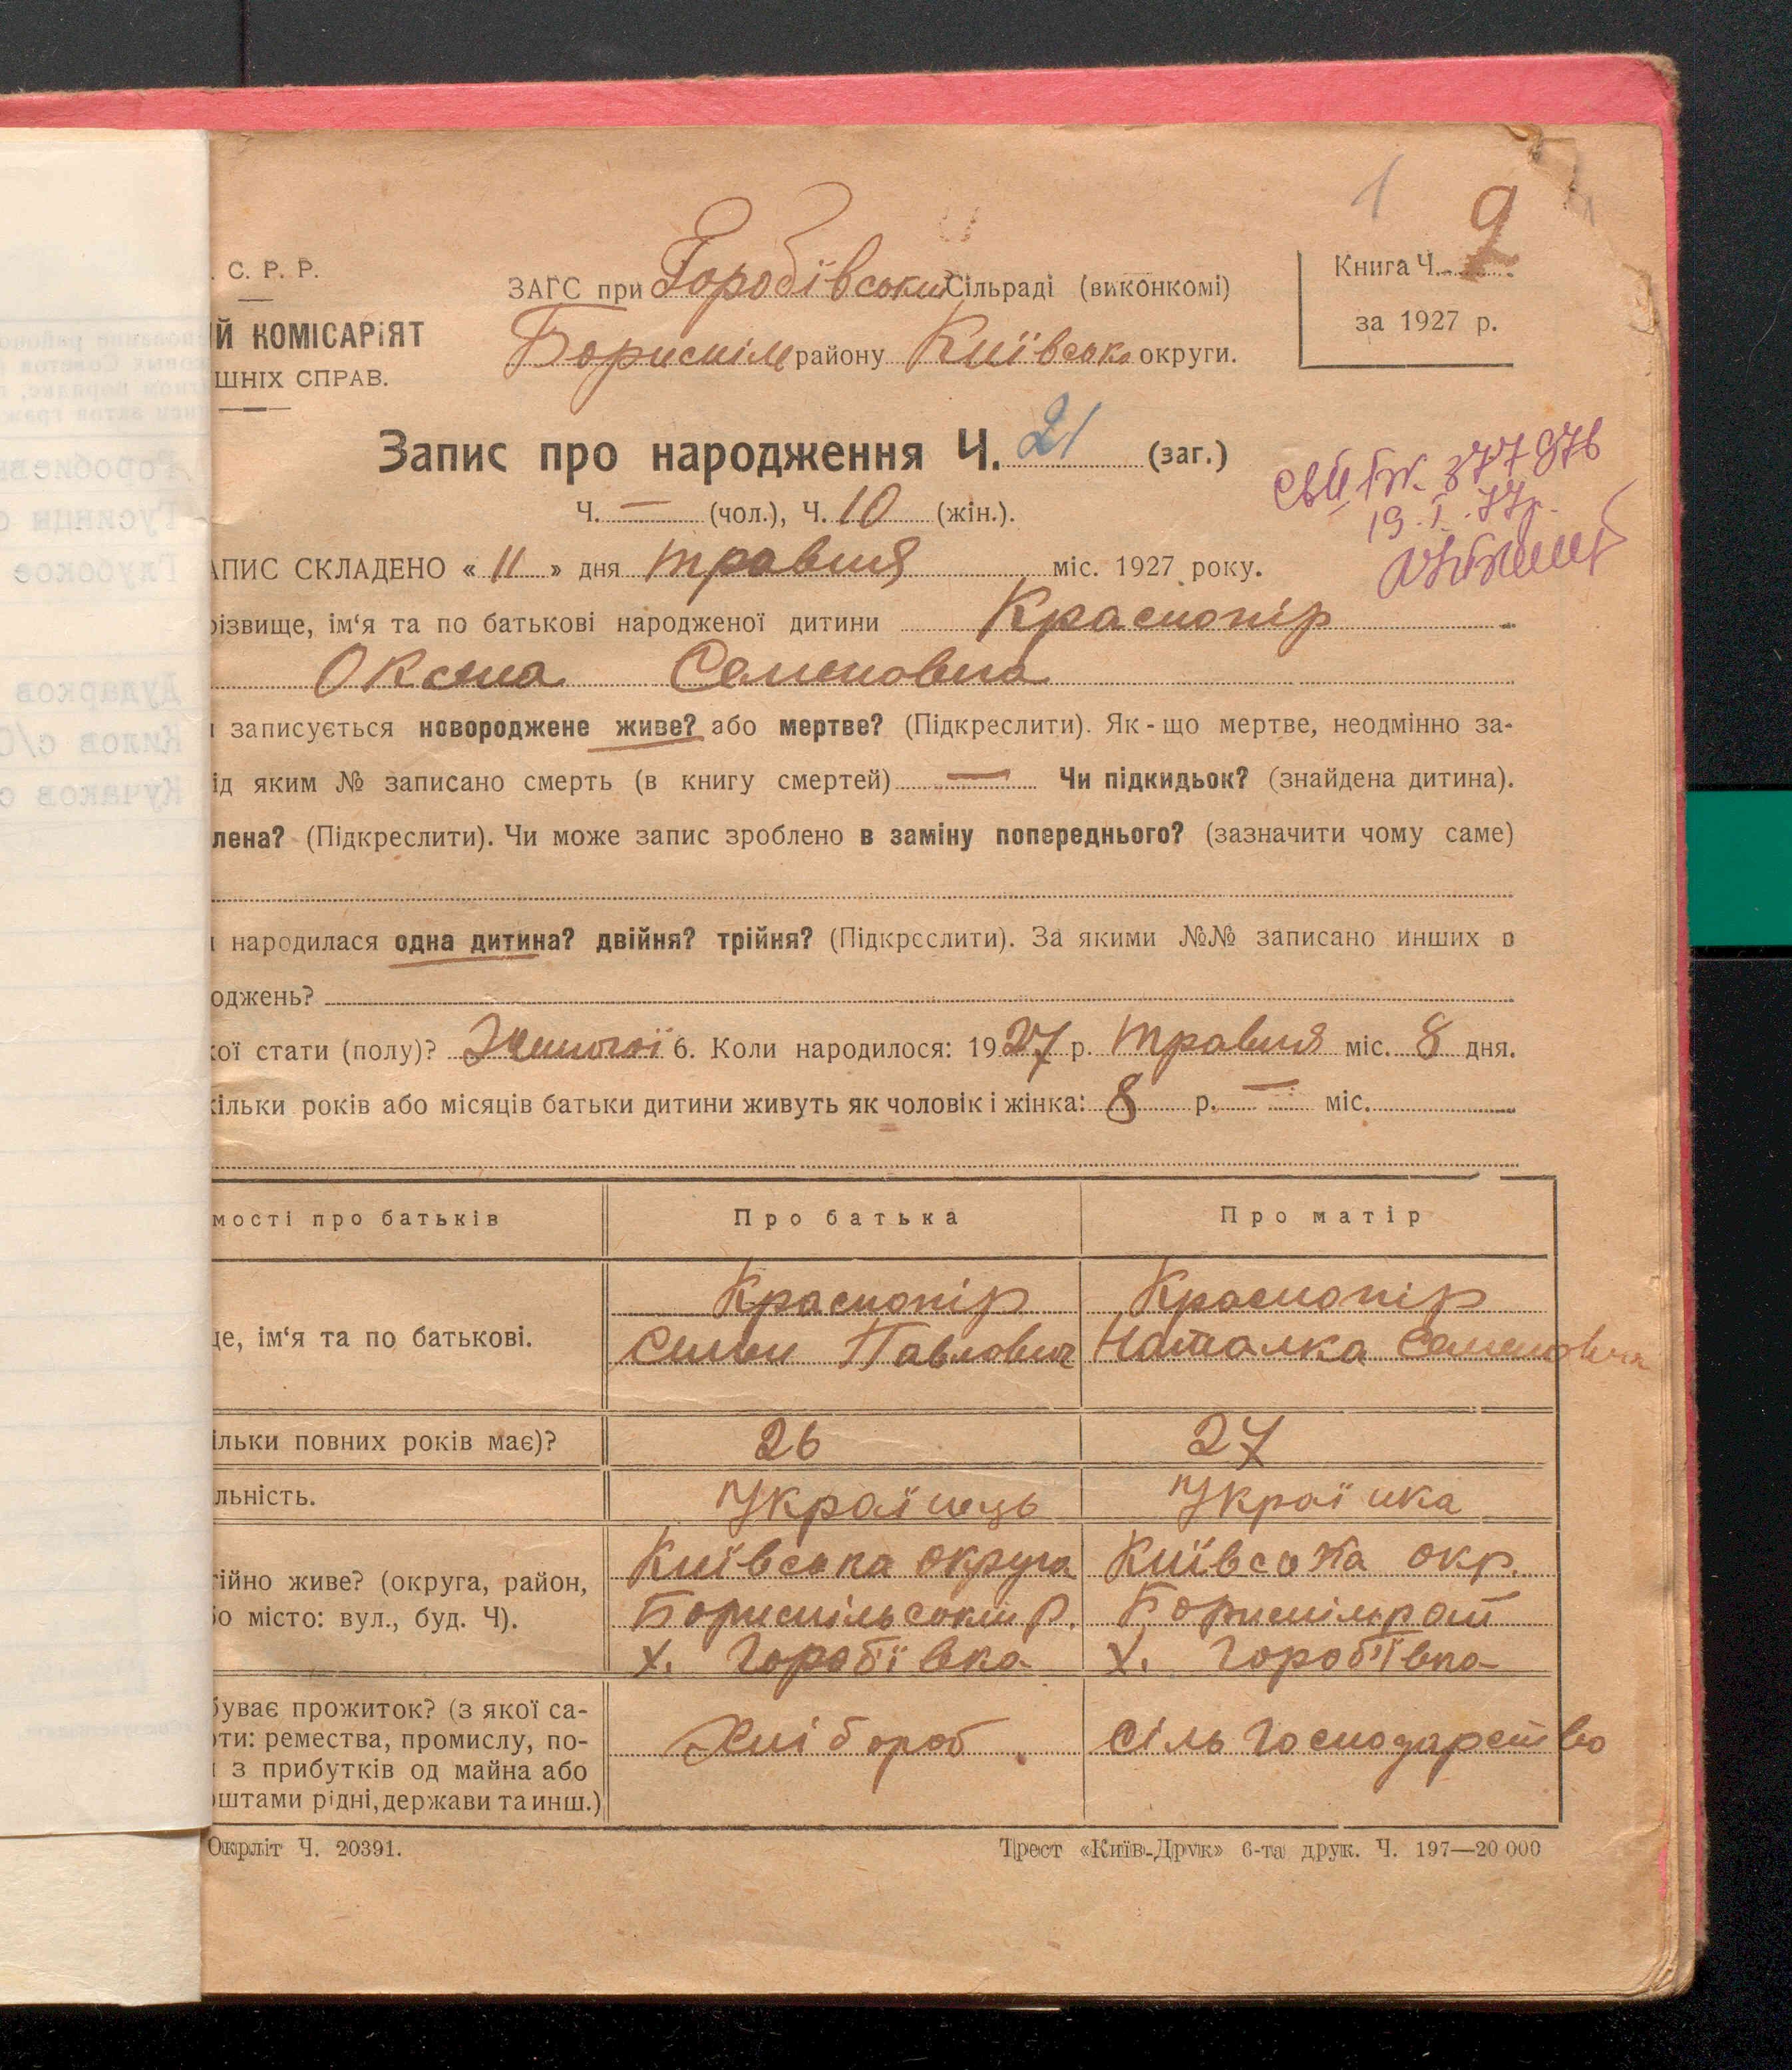 1
9
. С. Р. Р.
ЗАГС при Горобівській Сільраді (виконкомі)
Книга Ч.
Й КОМІСАРІЯТ
Бориспіль району Київсько округи.
за 1927 р.
ШНІХ СПРАВ.
Запис про народження Ч. 21 (заг.)
Ч. — (чол.), Ч. 10 (жін.).
19.I.77р.
АПИС СКЛАДЕНО « 11 » дня травня міс. 1927 року.
різвище, ім‘я та по батькові народженої дитини Краснопір
Оксана Семеновна
и записується новороджене живе? або мертве? (Підкреслити). Як-що мертве, неодмінно за-
ід яким № записано смерть (в книгу смертей) — Чи підкидьок? (знайдена дитина).
лена? (Підкреслити). Чи може запис зроблено в заміну попереднього? (зазначити чому саме)
и народилася одна дитина? двійня? трійня? (Підкреслити). За якими №№ записано инших
оджень?
кої стати (полу)? Жіночої 6. Коли народилося: 1927 р. травня міс. 8 дня.
кільки років або місяців батьки дитини живуть як чоловік і жінка: 8 р. — міс.
мості про батьків
Про батька
Про матір
це, ім‘я та по батькові.
Краснопір
Семен Павлович
Краснопір
Наталка Семеновна
ільки повних років має)?
26
27
льність.
Українець
Українка
тійно живе? (округа, район,
бо місто: вул., буд. Ч).
Київська округа
Бориспільський р.
х. Горобіївка
Київська окр.
х. Горобіївка
буває прожиток? (з якої са-
оти: ремества, промислу, по-
и з прибутків од майна або
оштами рідні, держави та инш.)
Хлібороб
Сіль Господарство
Окрліт Ч. 20391.
Трест «Київ-Друк» 6-та друк. Ч. 197—20 000